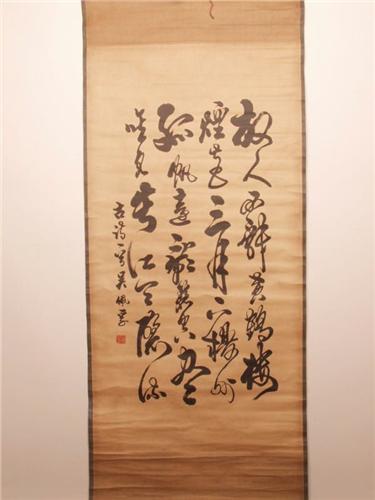 故人西辭黄鶴樓
煙花三月下揚州
孤帆遠影碧空尽
唯見長江天際流
古詩一首吴佩